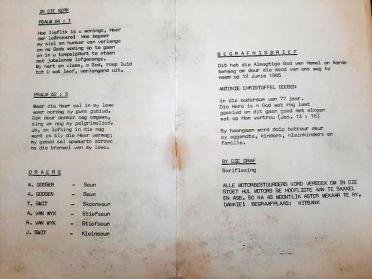 IN DIE KERK
PSALM 84 : 1
Hoe lieflik is u woninge, Heer
der leërskare! Hoe begeer
my siel en hunker van verlange
om na Gods woning op te gaan
en in u tempelpoort te staan
met jubelende lofgesange.
My hart en vlees, o God, roep luid
tot U wat leef, verlangend uit.
PSALM 42 : 5
Maar die Heer sal in my lewe
weer oordag sy guns gebied.
Ook deur donker nag omgewe,
sing ek nog my pelgrimslied.
Ja, ek lofsing in die nag
want ek bly die Heer verwag;
my gebed sal opwaarts strewe
na die bronwel van my lewe.
DRAERS
H. GOOSEN - Seun
A. GOOSEN - Seun
T. SWIT - Skoonseun
A. VAN WYK - Stiefseun
R. VAN WYK - Stiefseun
J. SWIT - Kleinseun
BEGRAFNISBRIEF
Dit het die Almagtige God van Hemel en Aarde
behaag om deur die dood van ons weg te
neem op 12 Junie 1985
ANTONIE CHRISTOFFEL GOOSEN
in die ouderdom van 77 jaar.
Die Here is 'n God wat reg laat
geskied en dit gaan goed met elkeen
wat op Hom vertrou (Jes.
Sy heengaan word diep betreur deur
sy eggenote, kinders, kleinkinders en
familie.
BY DIE GRAF
Skriflesing
ALLE MOTORBESTUURDERS WORD VERSOEK OM IN DIE
STOET HUL MOTORS SE HOOFLIGTE AAN TE SKAKEL
EN ASB. SO NA AS MOONTLIK AGTER MEKAAR TE RY,
DANKIE! BEGRAAFPLAAS: WITBANK